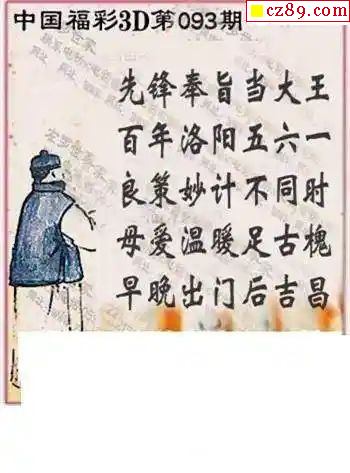 cz89.com
中国福彩3D第093期
先锋奉旨当大王
百年洛阳五六一
良策妙计不同时
母爱温暖足古槐
早晚出门后吉昌